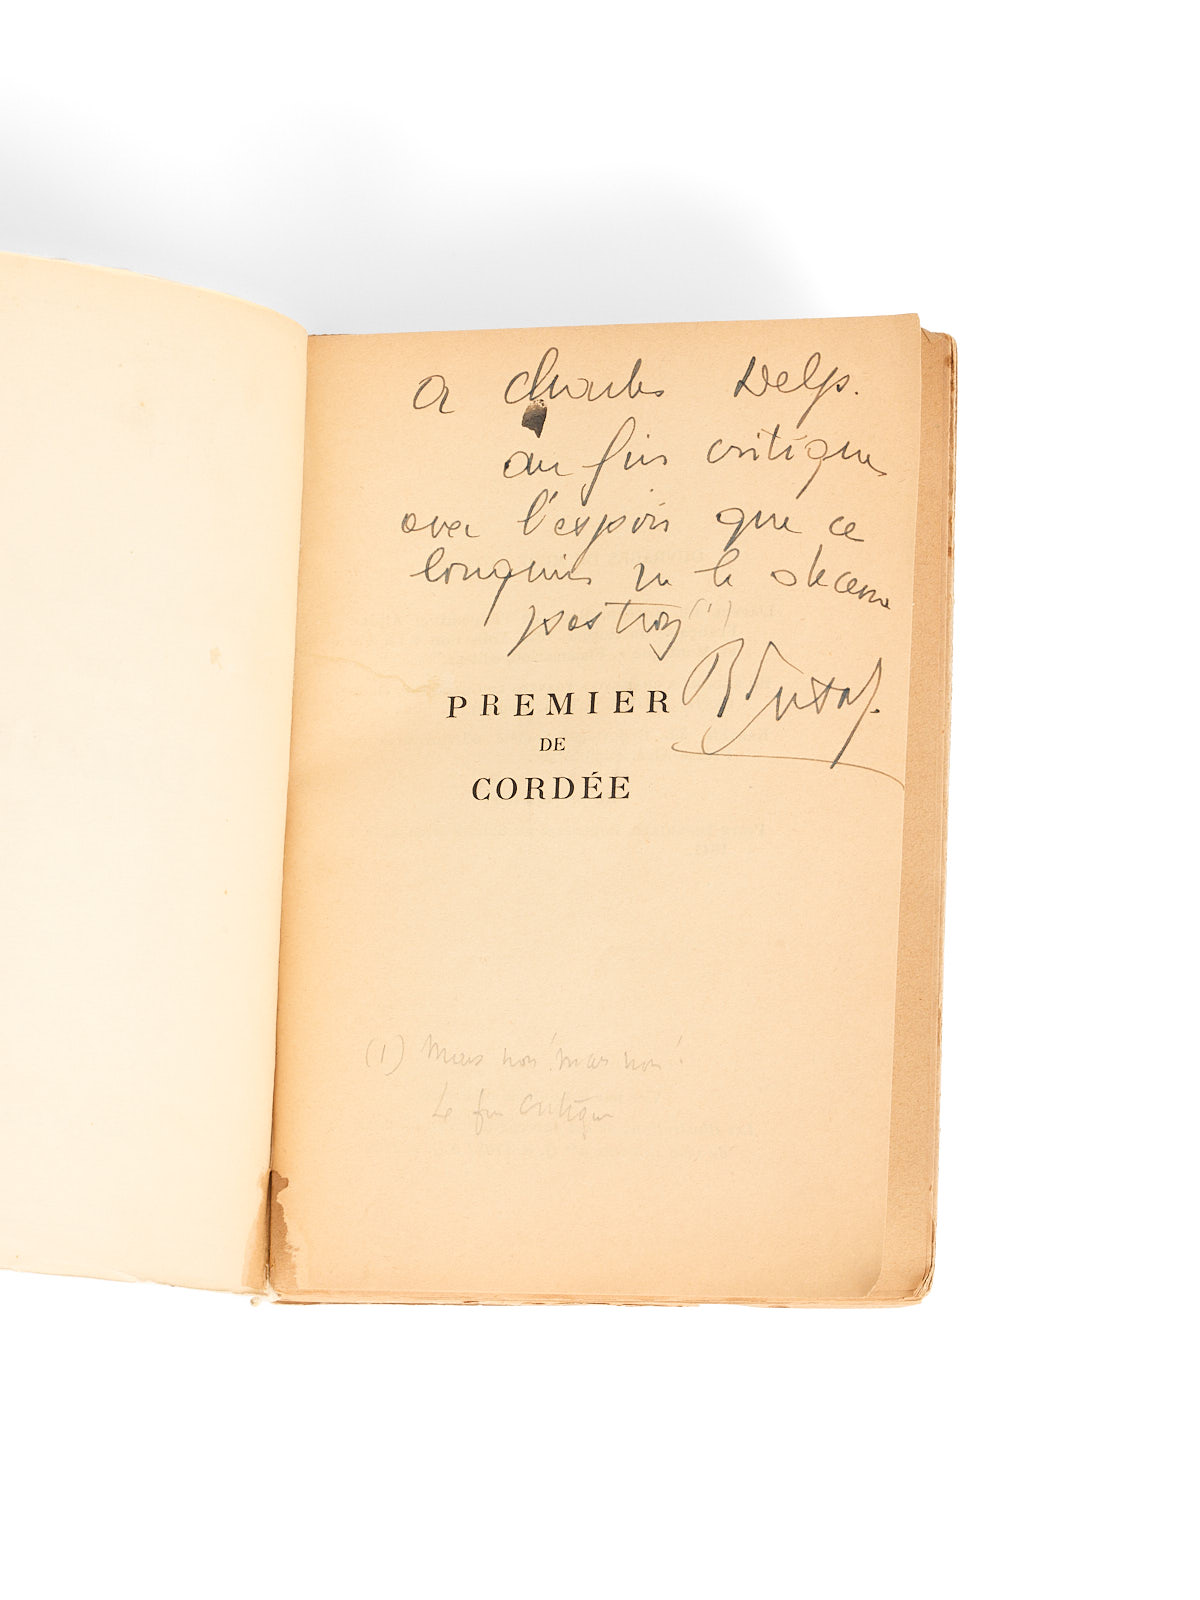 A Charles Delp.
au fin critique
avec l'espoir que ce
bouquin ne le décevra
pas trop (1)
PREMIER
DE
CORDÉE
(1) Mais non! mais non!
Le fin critique